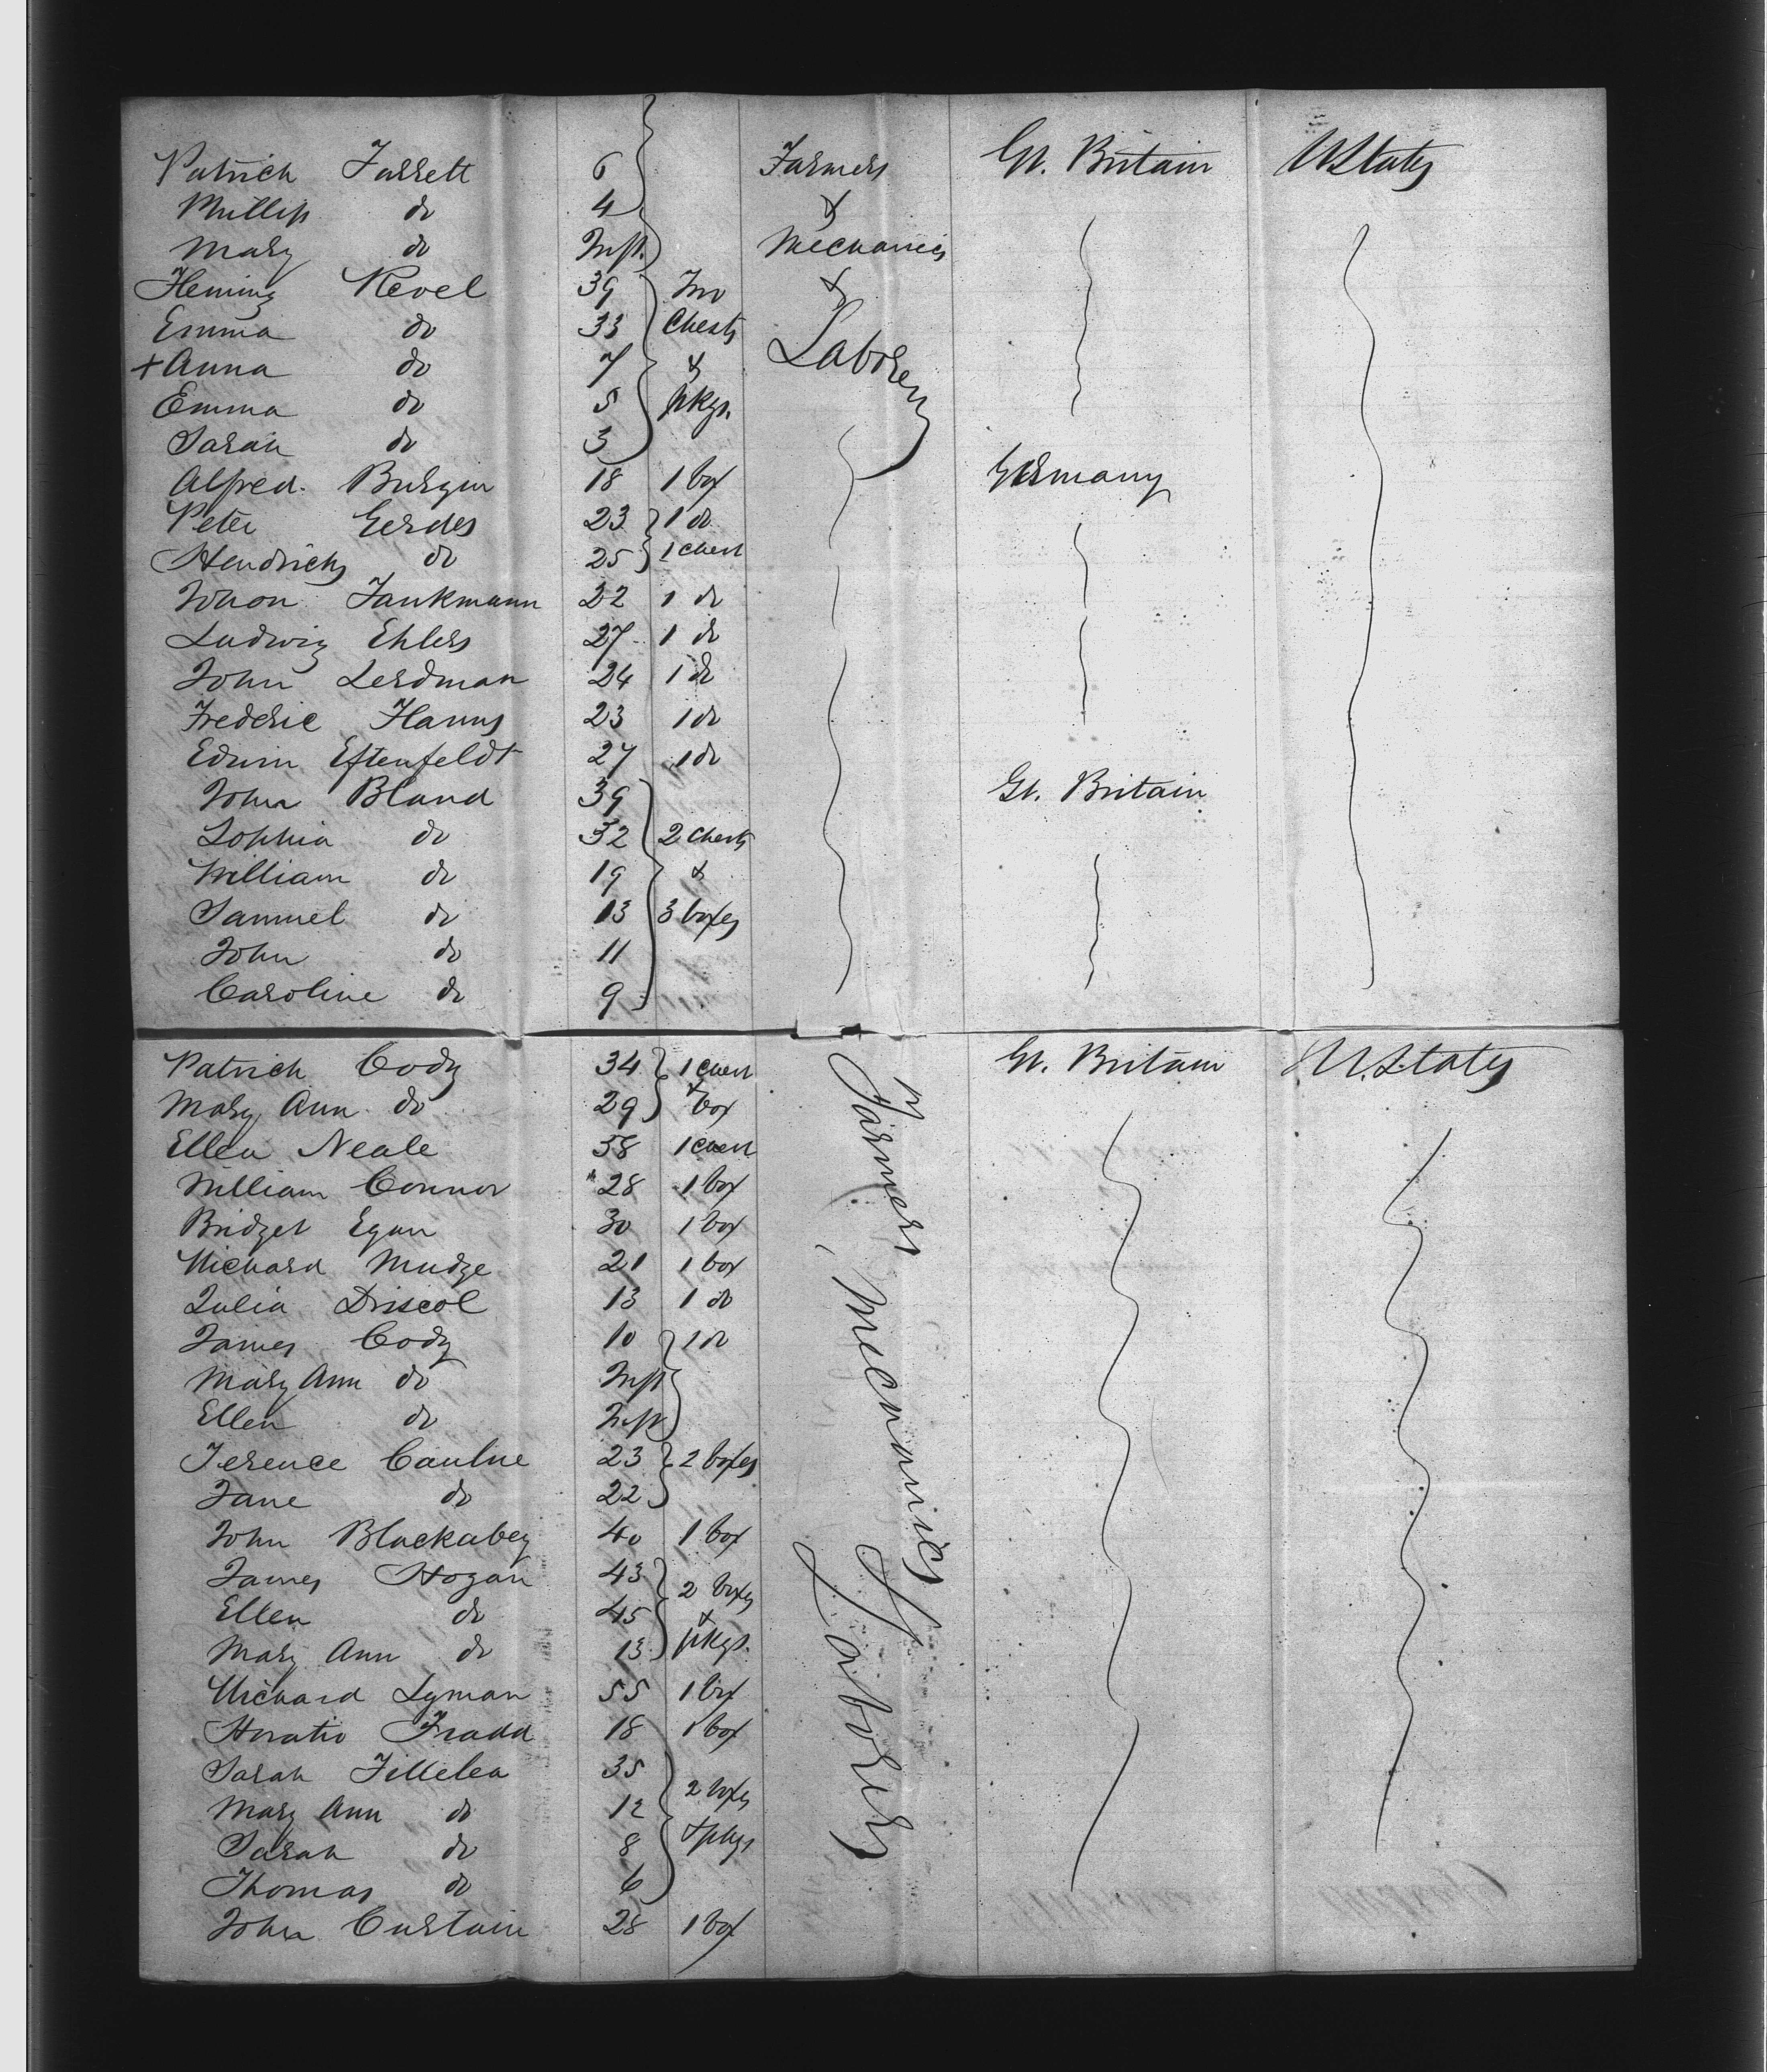 Patrick Farrell 6 Farmers Gt. Britain U States
Phillip do 4 &
Mary do Inft. Mechanics
Fleming Revel 39 Two &
Emma do 33 Chests Laborers
+ Anna do 7 &
Emma do 5 pkgs.
Sarah do 3
Alfred Burgin 18 1 box Germany
Peter Gerdes 23 1 do
Hendricks do 25 1 chest
Johon Tankmann 22 1 do
Ludwig Ehlers 27 1 do
John Lerdman 24 1 do
Frederic Hanns 23 1 do
Edwin Eftenfeldt 27 1 do
John Bland 39 Gt. Britain
Sophia do 32 2 chests
William do 19 &
Samuel do 13 3 boxes
John do 11
Caroline do 9
Patrick Cody 34 1 chest Gt. Britain U. States
Mary Ann do 29 & box
Ellen Neale 38 1 chest
William Connor 28 1 box
Bridget Egan 30 1 box
Richard Mudge 21 1 box
Julia Driscol 13 1 do
James Cody 10 1 do
Mary Ann do Inft
Ellen do Inft
Terence Caulne 23 2 boxes
Jane do 22
John Blackabey 40 1 box
James Hogan 43 2 boxes
Ellen do 45 &
Mary Ann do 13 pkgs.
Richard Lyman 55 1 box
Horatio Fradd 18 1 box
Sarah Fillelea 35
Mary Ann do 12 2 boxes
Sarah do 8 & pkgs
Thomas do 6
John Curtain 28 1 box
Farmers, Mechanics & Laborers